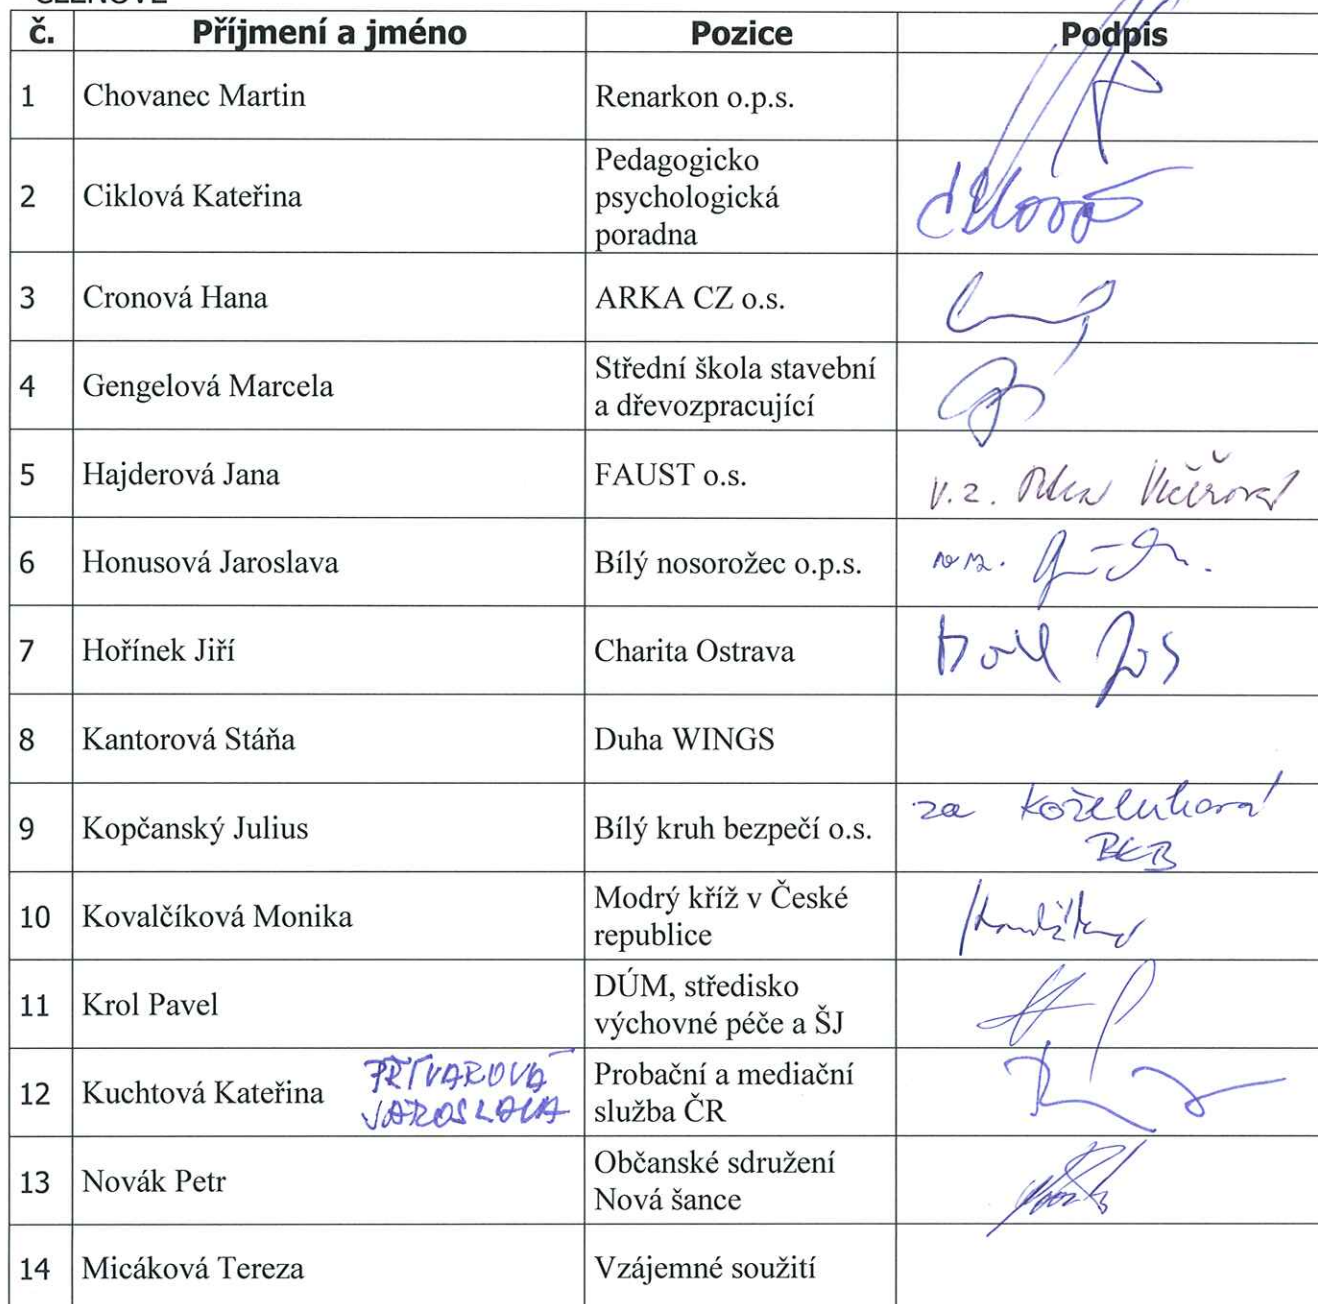 ČLENOVÉ
č. Příjmení a jméno Pozice Podpis
1 Chovanec Martin Renarkon o.p.s.
2 Ciklová Kateřina Pedagogicko
psychologická
poradna
3 Cronová Hana ARKA CZ o.s.
4 Gengelová Marcela Střední škola stavební
a dřevozpracující
5 Hajderová Jana FAUST o.s. v.z.
6 Honusová Jaroslava Bílý nosorožec o.p.s.
7 Hořínek Jiří Charita Ostrava
8 Kantorová Stáňa Duha WINGS
9 Kopčanský Julius Bílý kruh bezpečí o.s. za Koželuhová
BKB
10 Kovalčíková Monika Modrý kříž v České
republice
11 Krol Pavel DÚM, středisko
výchovné péče a ŠJ
12 Kuchtová Kateřina Probační a mediační
služba ČR
JAROSLAVA
13 Novák Petr Občanské sdružení
Nová šance
14 Micáková Tereza Vzájemné soužití